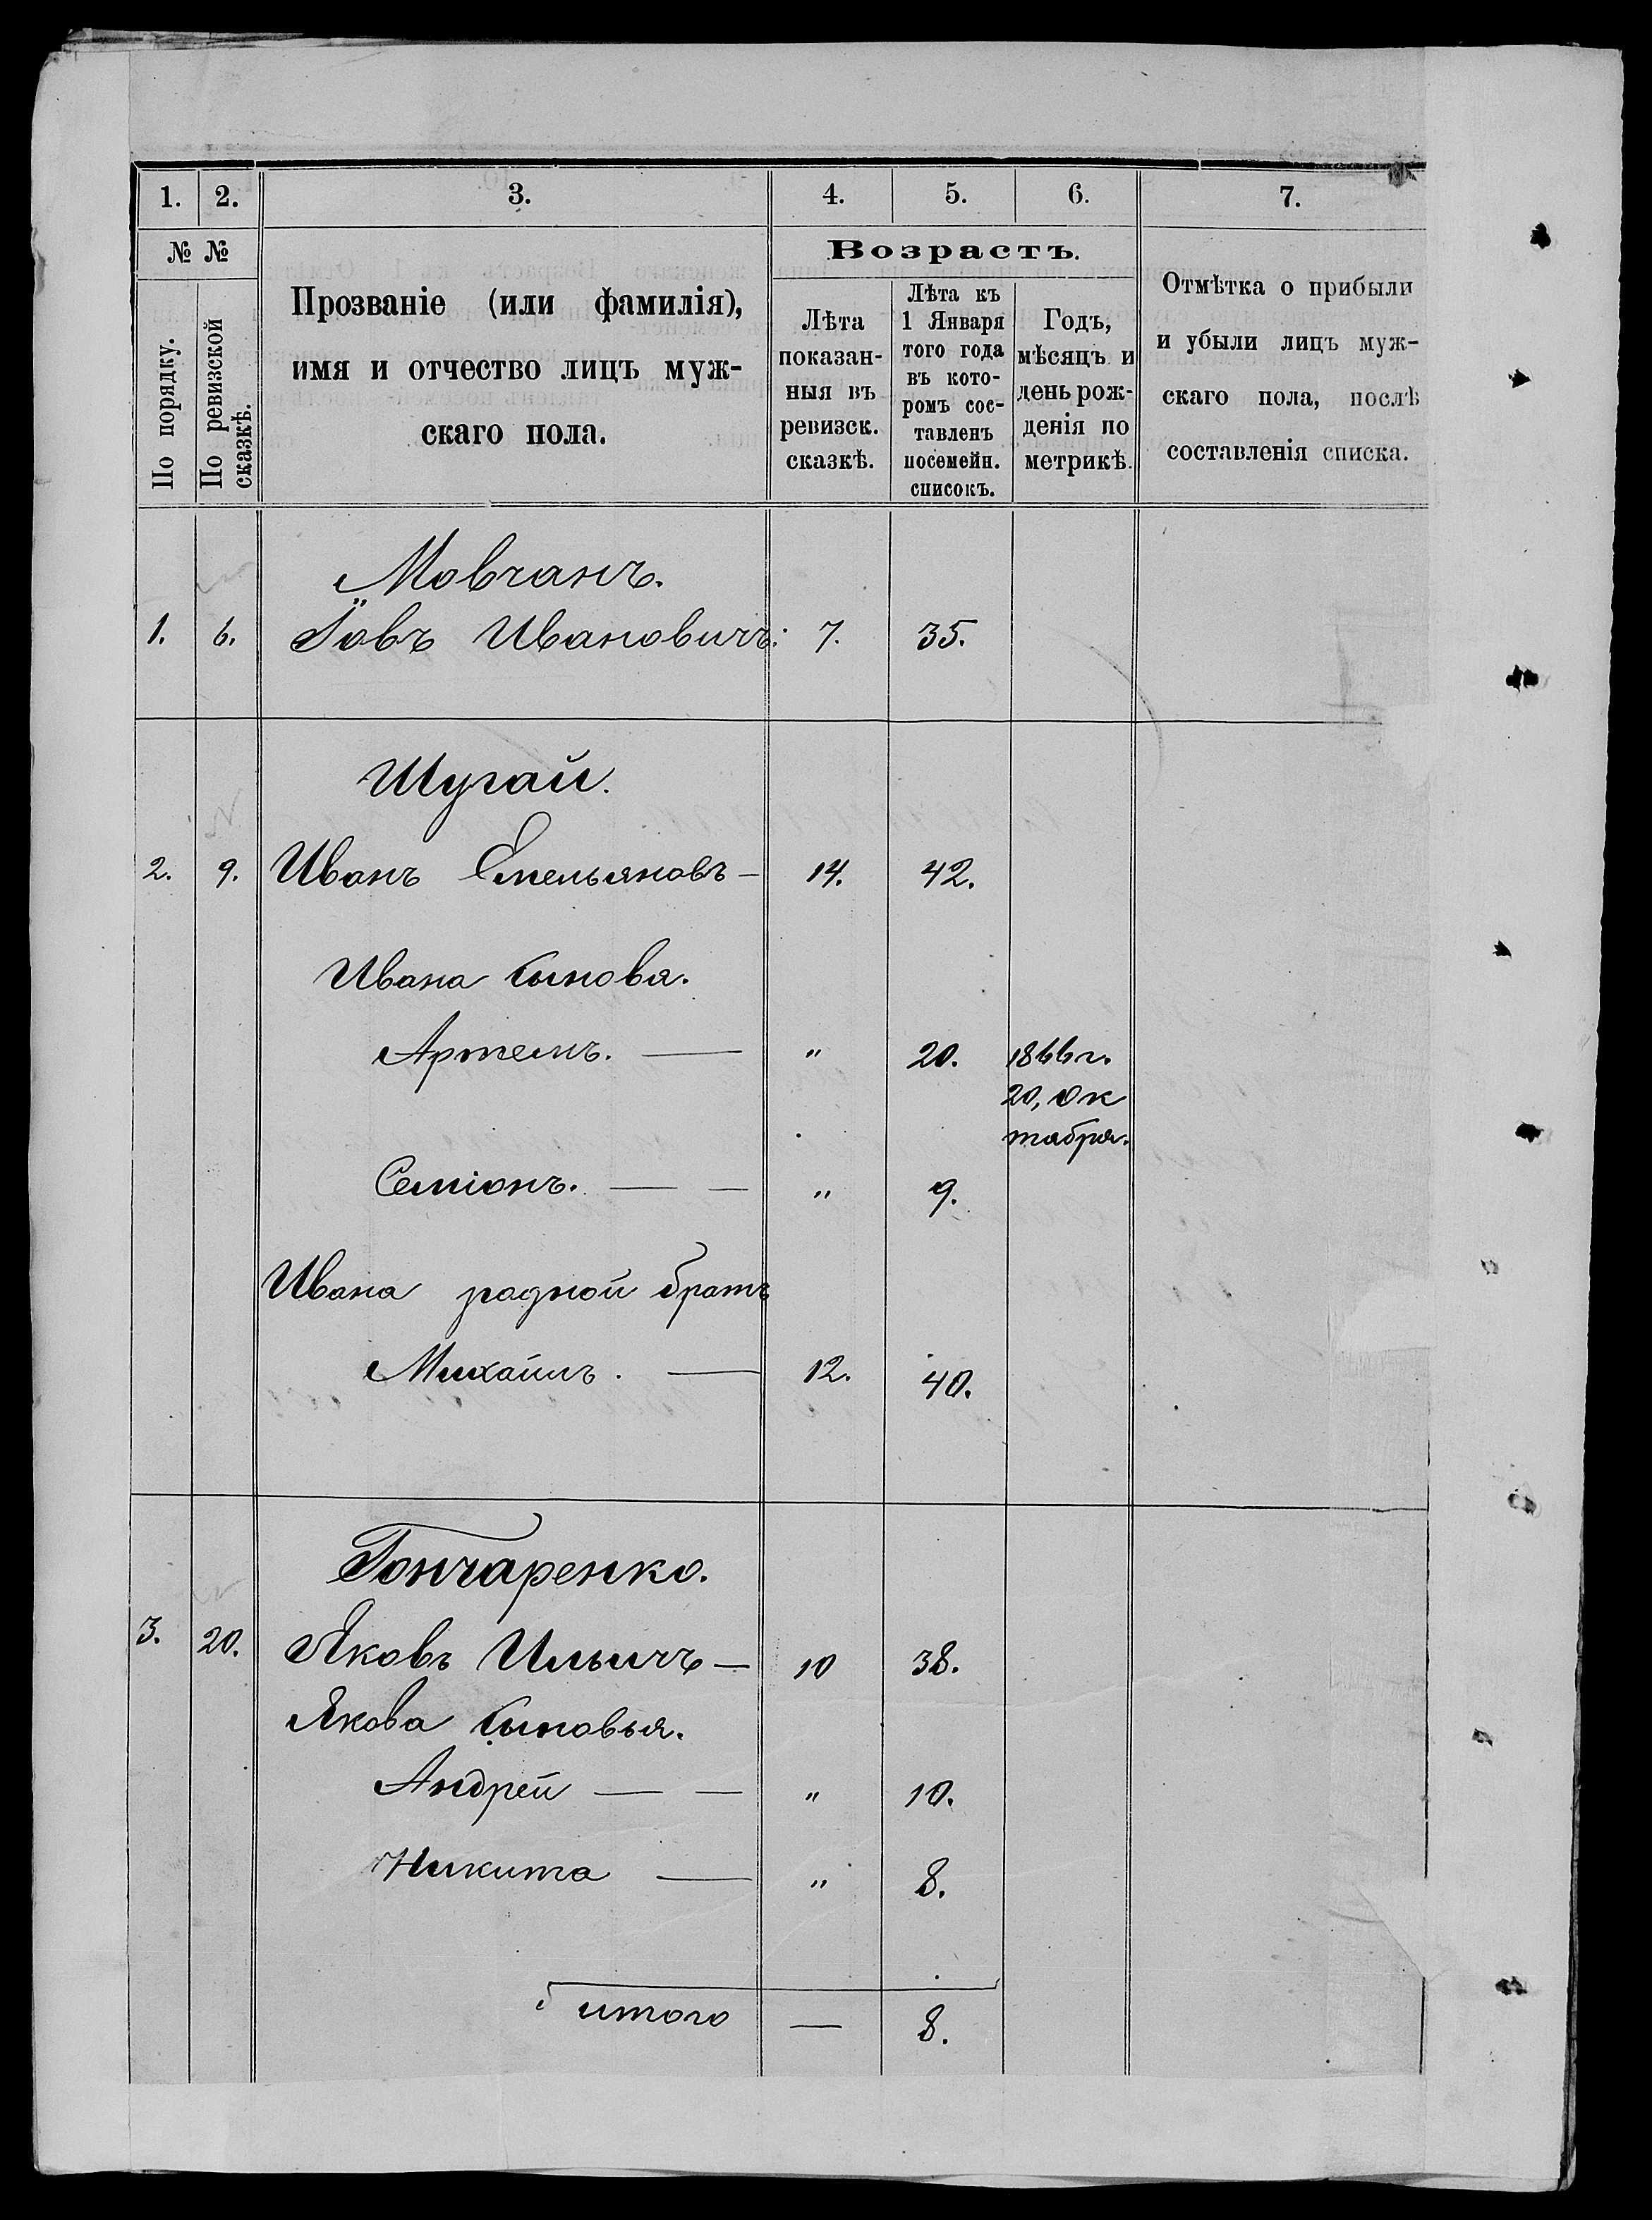 1. 2. 3. 4. 5. 6. 7.
№ №
По порядку.
По ревизской сказкѣ.
Прозваніе (или фамилія),
имя и отчество лицъ муж-
скаго пола.
Возрастъ.
Лѣта
показан-
ныя въ
ревизск.
сказкѣ.
Лѣта къ
1 Января
того года
въ кото-
ромъ сос-
тавленъ
посемейн.
списокъ.
Годъ,
мѣсяцъ и
день рож-
денія по
метрикѣ.
Отмѣтка о прибыли
и убыли лицъ муж-
скаго пола, послѣ
составленія списка.
Мовчанъ.
1. 6. Іовъ Ивановичъ: 7. 35.
Шугай.
2. 9. Иванъ Емельяновъ — 14. 42.
Ивана сынова.
Артемъ. — " 20. 1866 г.
20, Ок
табря.
Семіонъ. — — " 9.
Ивана радной братъ
Михайлъ. — 12. 40.
Гончаренко.
3. 20. Яковъ Ильичъ — 10 38.
Якова сыновья.
Андрей — — " 10.
Никита — " 8.
итого — 8.